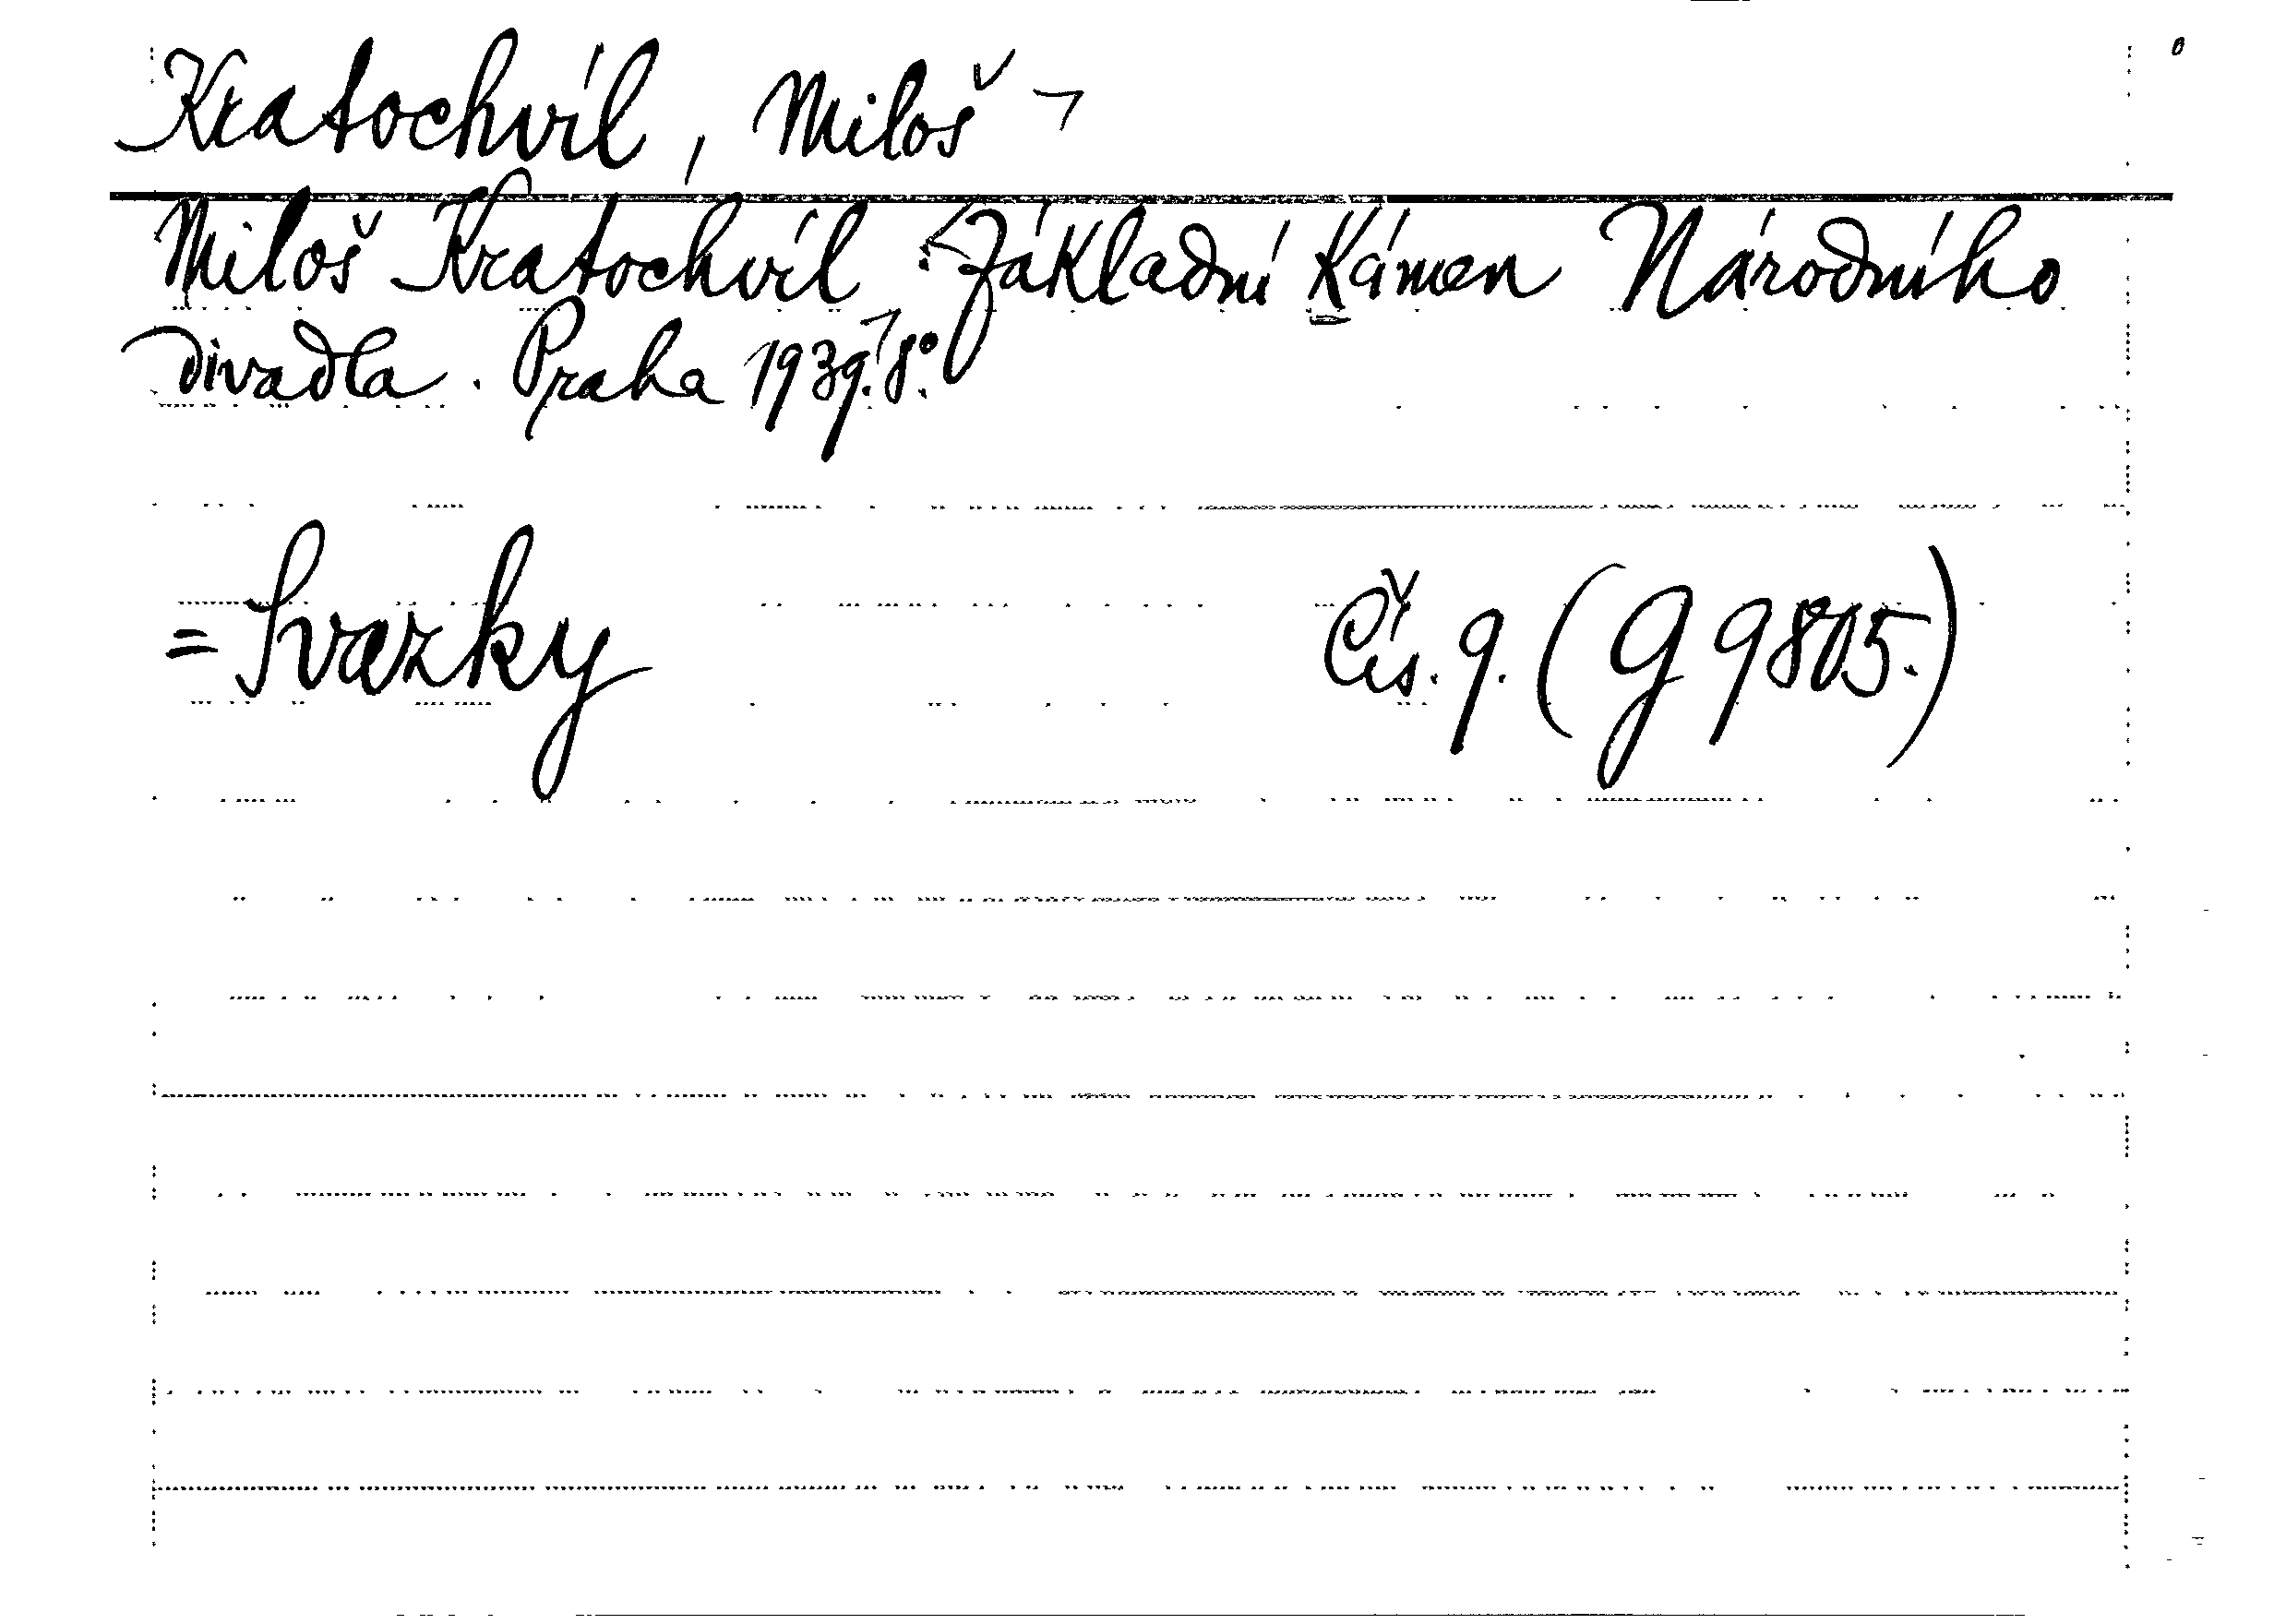 Kratochvíl, Miloš
Miloš Kratochvíl : Základní Kámen Národního
divadla. Praha 1939. 8°.
= Svazky Čís. 9. (G 9805.)